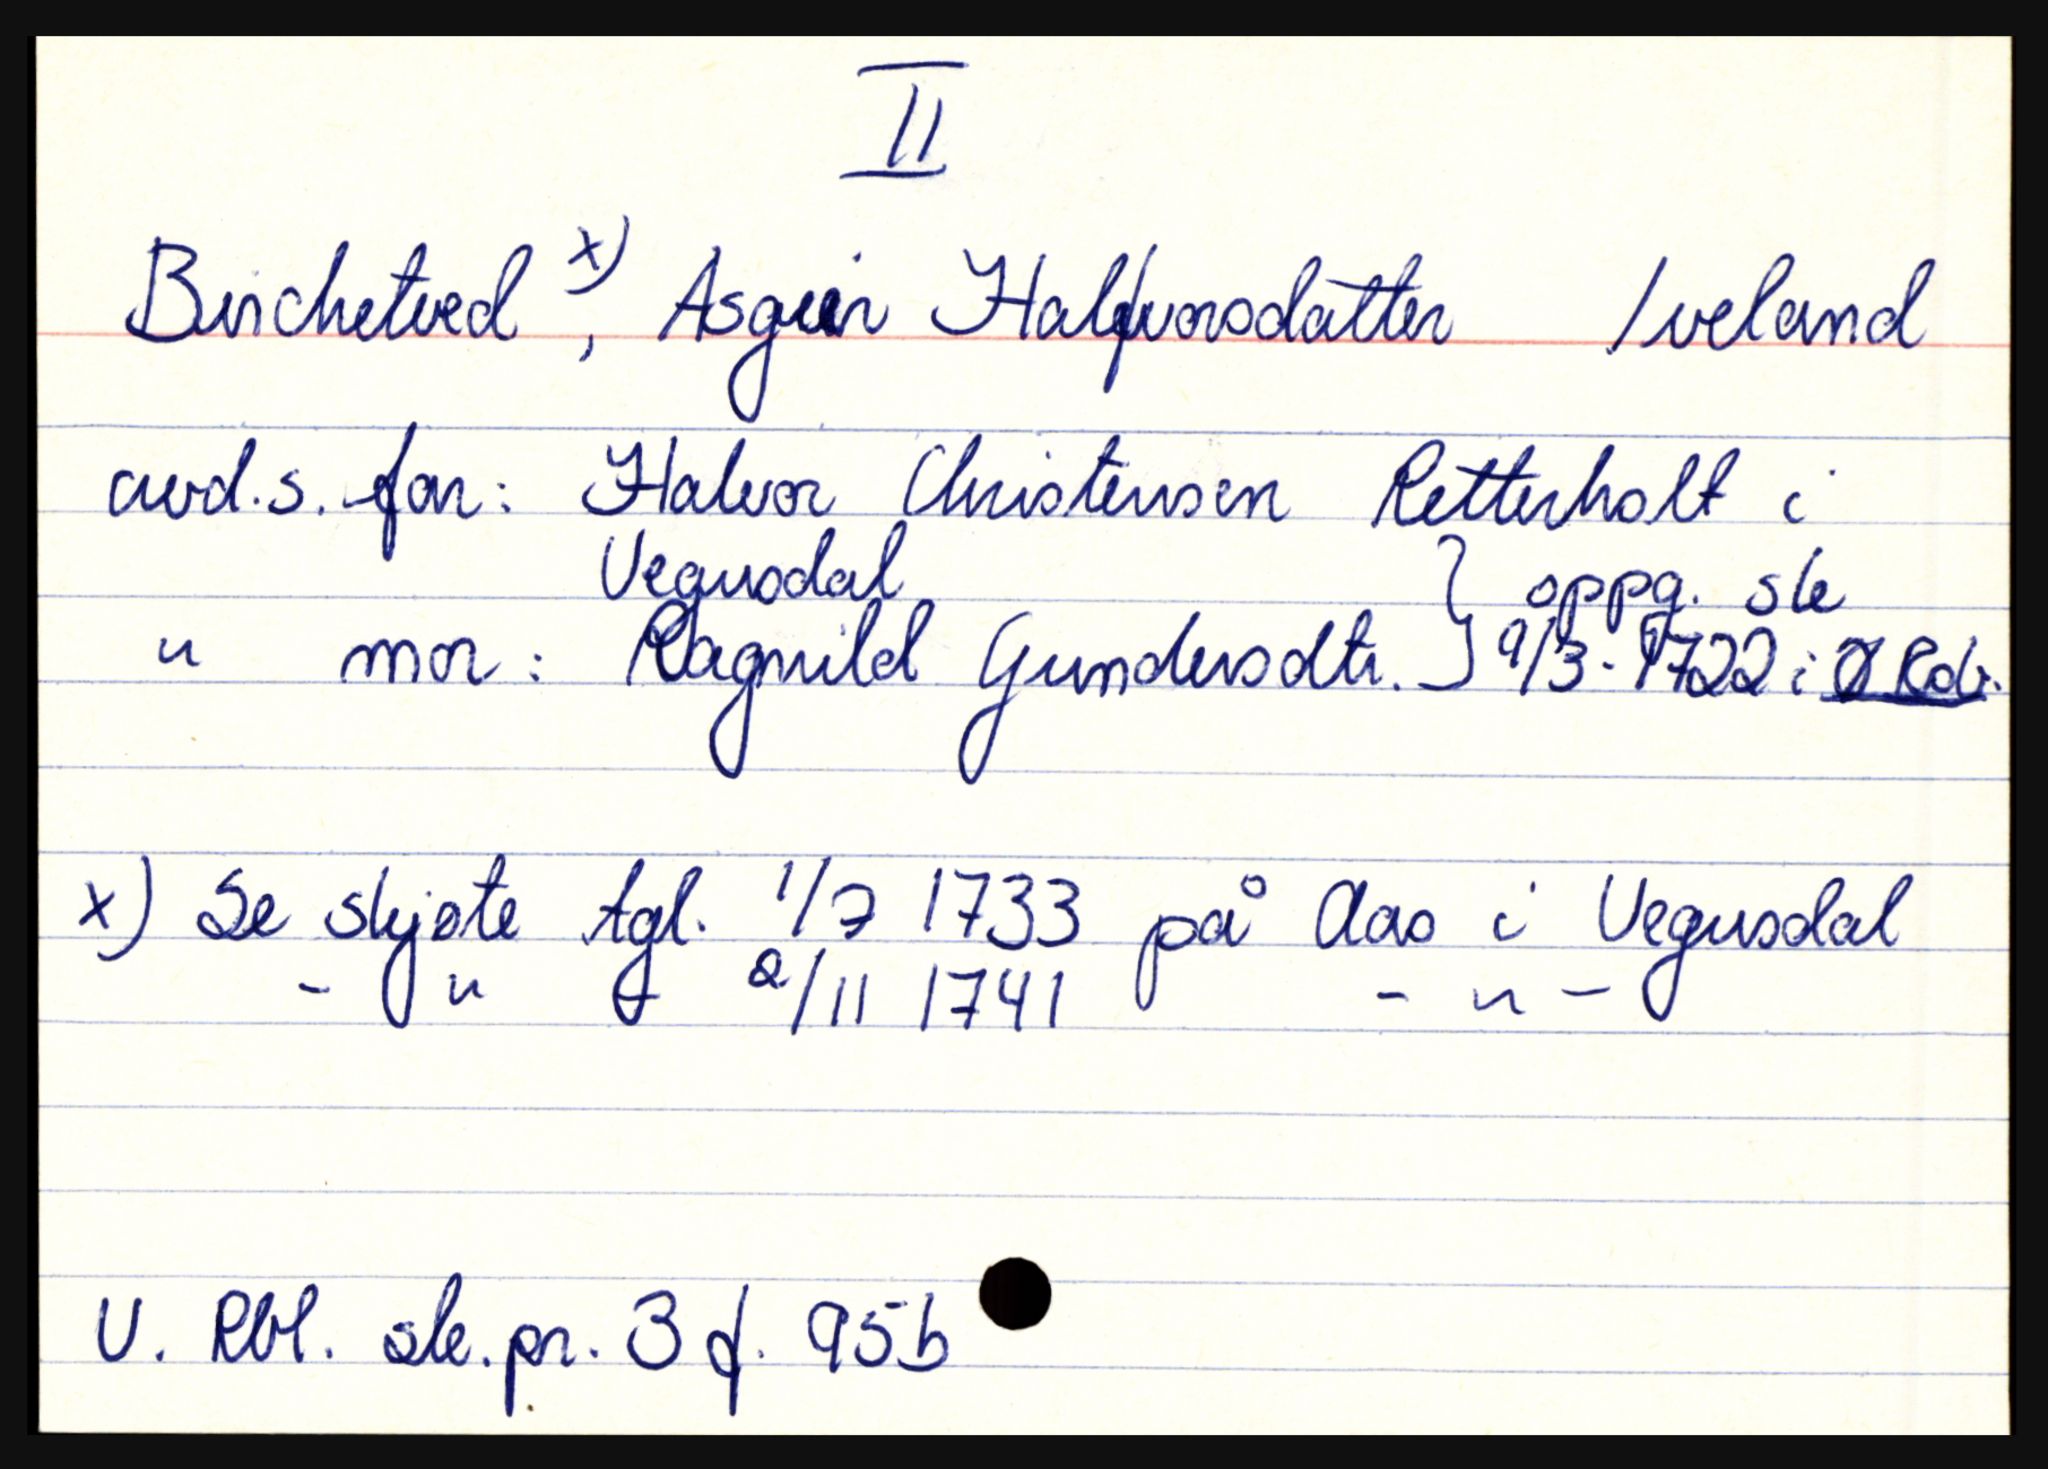 II
Birchetved x), Asgier Halfvorsdatter Iveland
avd.s. far: Halvor Christensen Retterholt i
Vegusdal } oppg. sk
" mor: Ragnild Gundersdtr. } 9/3-1722 i Ø Rdv.
x) Se skjøte tgl. 1/7 1733 på Aas i Vegusdal
- " - 2/11 1741 - " -
V. Rbl. sk.pr. 3 f. 95b